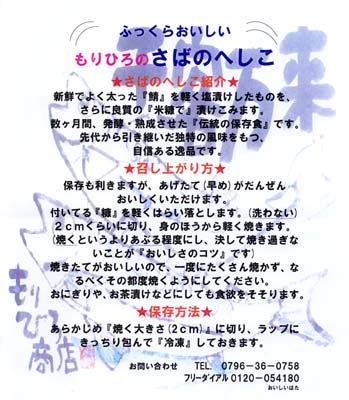 ふっくらおいしい
もりひろのさばのへしこ
★さばのへしこ紹介★
新鮮でよく太った『鯖』を軽く塩漬けしたものを、
さらに良質の『米糠で』漬けこみます。
数ヶ月間、発酵・熟成させた『伝統の保存食』です。
先代から引き継いだ独特の風味をもつ、
自信ある逸品です。
★召し上がり方★
保存も利きますが、あげたて(早め)がだんぜん
おいしくいただけます。
付いてる『糠』を軽くはらい落とします。(洗わない)
2cmくらいに切り、身のほうから軽く焼きます。
(焼くというよりあぶる程度にし、決して焼き過ぎな
いことが『おいしさのコツ』です)
焼きたてがおいしいので、一度にたくさん焼かず、な
るべくその都度焼くようにしてください。
おにぎりや、お茶漬けなどにしても食欲をそそります。
★保存方法★
あらかじめ『焼く大きさ(2cm)』に切り、ラップに
きっちり包んで『冷凍』しておきます。
お問い合わせ TEL 0796-36-0758
フリーダイアル 0120-054180
おいしいはた
もりひろ商店